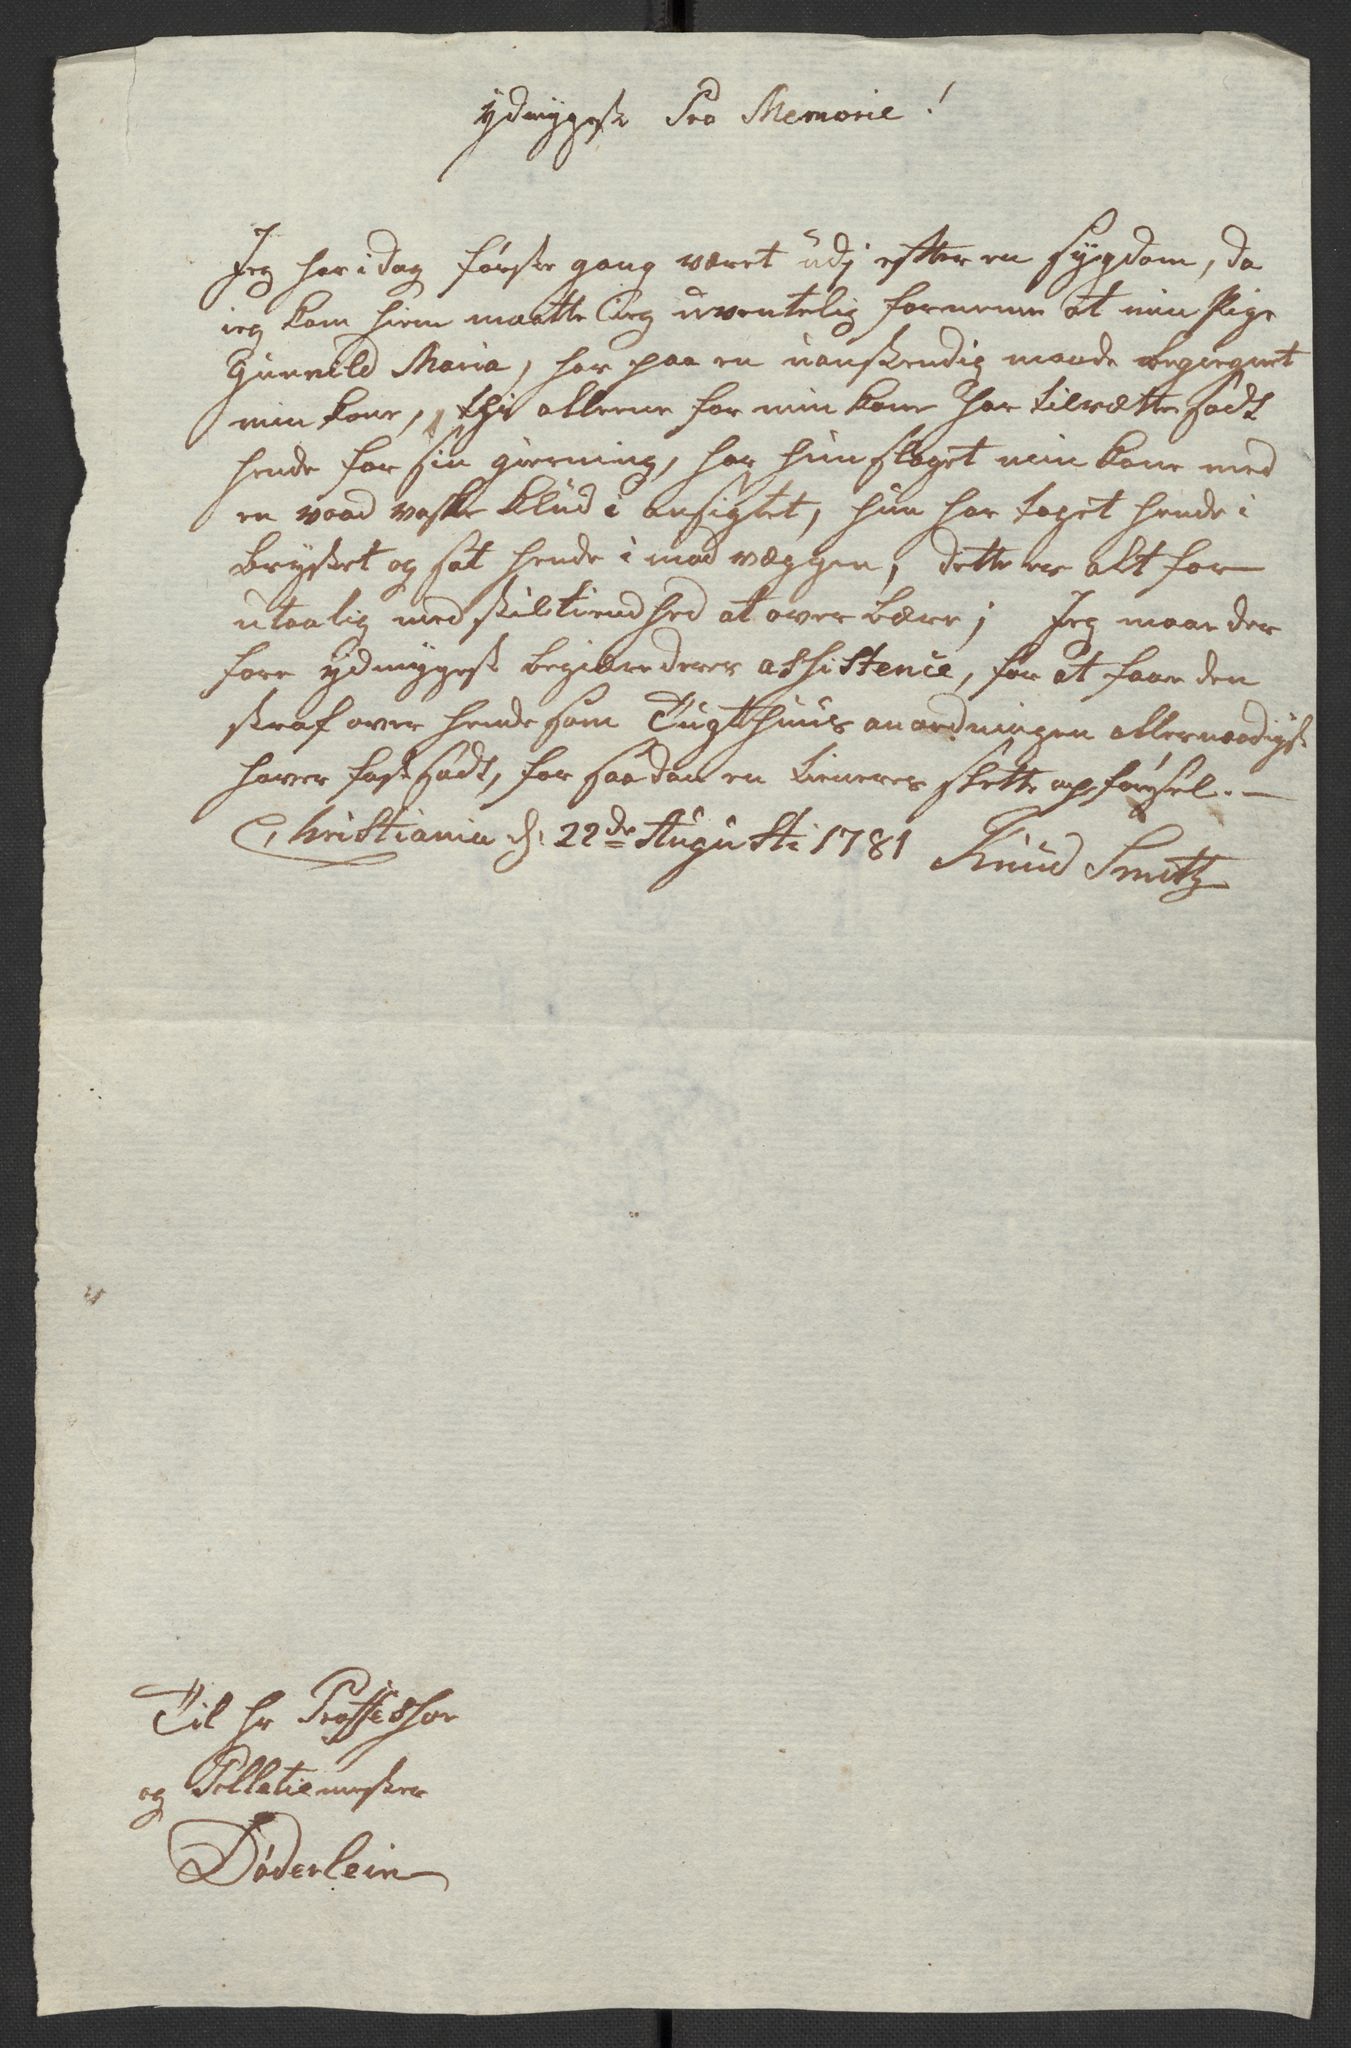 ydmygste Pro Memorie!
Jeg har i dag første gang været udj efter en sygdom, da
ieg kom hiem maatte ieg uventelig fornemme at min Pige
Gunnild Maria, har paa en uanstendig maade begegnet
min kone, thi alleene for min kone har tilrætte sadt
hende for sin gierning, har hun slaget min kone med
en vaad vaske klud i ansigtet, hun har taget hende i
brystet og sat hende i mod væggen, dette er alt for
utaalig med stiltiendhed at over bære; Jeg maae der
fore ydmygest begiære deres assistence, for at faae den
straf over hende som Tugthuus anordningen allernaadigst
haver fastsadt, for saadan en tieneres slette opførsel. —
Christiania d: 22de Augusti 1781 Knud Smith
Til hr Professor
og Polletiemester
Døderlein